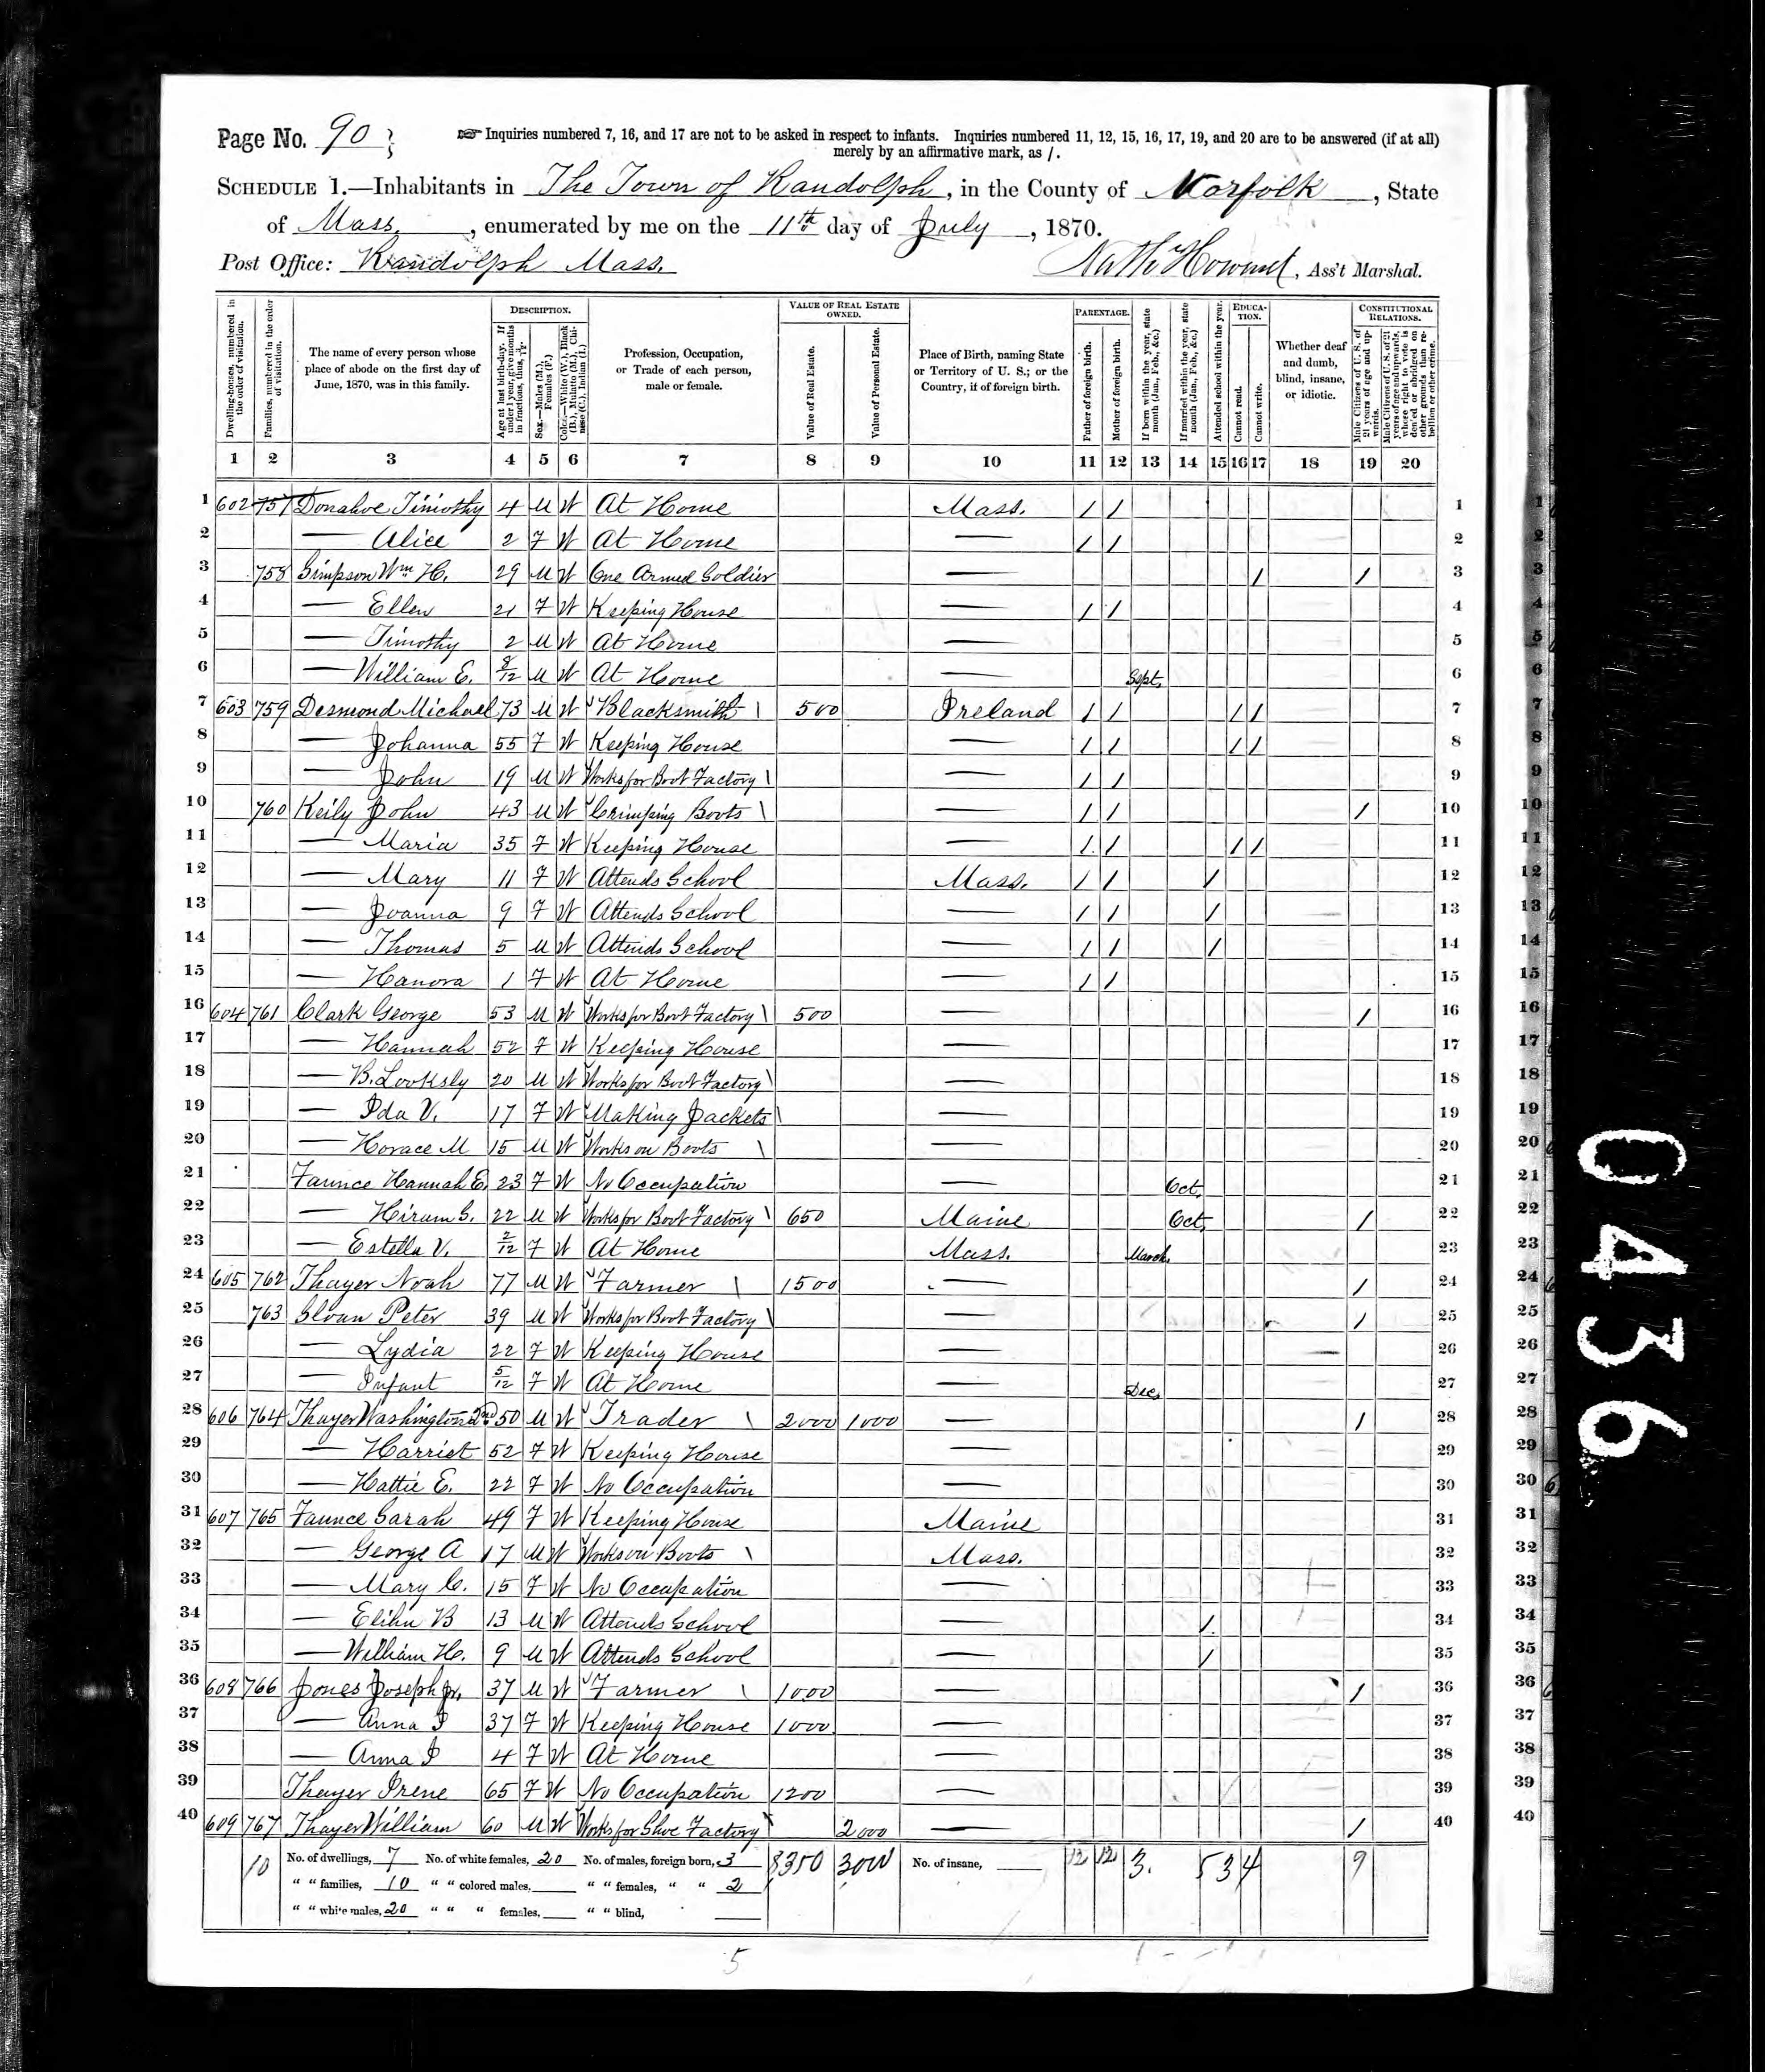 Page No. 90
☞ Inquiries numbered 7, 16, and 17 are not to be asked in respect to infants. Inquiries numbered 11, 12, 15, 16, 17, 19, and 20 are to be answered (if at all)
merely by an affirmative mark, as /.
SCHEDULE 1.—Inhabitants in The Town of Randolph, in the County of Norfolk, State
of Mass., enumerated by me on the 11th day of July, 1870.
Post Office: Randolph Mass.
, Ass't Marshal.
Dwelling-houses, numbered in the order of visitation.
Families, numbered in the order of visitation.
The name of every person whose place of abode on the first day of June, 1870, was in this family.
DESCRIPTION.
Age at last birth-day. If under 1 year, give months in fractions, thus, 3/12.
Sex.—Males (M.), Females (F.)
Color.—White (W.), Black (B.), Mulatto (M.), Chinese (C.), Indian (I.)
Profession, Occupation, or Trade of each person, male or female.
VALUE OF REAL ESTATE OWNED.
Value of Real Estate.
Value of Personal Estate.
Place of Birth, naming State or Territory of U. S.; or the Country, if of foreign birth.
PARENTAGE.
Father of foreign birth.
Mother of foreign birth.
If born within the year, state month (Jan., Feb., &c.)
If married within the year, state month (Jan., Feb., &c.)
Attended school within the year.
EDUCATION.
Cannot read.
Cannot write.
Whether deaf and dumb, blind, insane, or idiotic.
CONSTITUTIONAL RELATIONS.
Male Citizens of U. S. of 21 years of age and upwards.
Male Citizens of U. S. of 21 years of age and upwards, whose right to vote is denied or abridged on other grounds than rebellion or other crime.
1 2 3 4 5 6 7 8 9 10 11 12 13 14 15 16 17 18 19 20
1 602 757 Donahoe Timothy 4 M W At Home Mass. / / 1
2 — Alice 2 F W At Home — / / 2
3 758 Simpson Wm H. 29 M W One Armed Soldier — / / 3
4 — Ellen 21 F W Keeping House — / / 4
5 — Timothy 2 M W At Home — 5
6 — William E. 8/12 M W At Home — Sept. 6
7 603 759 Desmond Michael 73 M W Blacksmith \ 500 Ireland / / / / 7
8 — Johanna 55 F W Keeping House — / / / / 8
9 — John 19 M W Works for Boot Factory \ — / / 9
10 760 Keily John 43 M W Crimping Boots \ — / / / 10
11 — Maria 35 F W Keeping House — / / / / 11
12 — Mary 11 F W Attends School Mass. / / / 12
13 — Joanna 9 F W Attends School — / / / 13
14 — Thomas 5 M W Attends School — / / / 14
15 — Hanora 1 F W At Home — / / 15
16 604 761 Clark George 53 M W Works for Boot Factory \ 500 — / 16
17 — Hannah 52 F W Keeping House — 17
18 — B. Looksly 20 M W Works for Boot Factory \ — 18
19 — Ida V. 17 F W Making Jackets \ — 19
20 — Horace M 15 M W Works on Boots \ — 20
21 Faunce Hannah E. 23 F W No Occupation — Oct. 21
22 — Hiram S. 22 M W Works for Boot Factory \ 650 Maine Oct. / 22
23 — Estella V. 2/12 F W At Home Mass. March. 23
24 605 762 Thayer Noah 77 M W Farmer \ 1500 — / 24
25 763 Sloan Peter 39 M W Works for Boot Factory \ — / 25
26 — Lydia 22 F W Keeping House — 26
27 — Infant 5/12 F W At Home — Dec. 27
28 606 764 Thayer Washington 2nd 50 M W Trader \ 2000 1000 — / 28
29 — Harriet 52 F W Keeping House — 29
30 — Hattie E. 22 F W No Occupation — 30
31 607 765 Faunce Sarah 49 F W Keeping House Maine 31
32 — George A 17 M W Works on Boots \ Mass. 32
33 — Mary C. 15 F W No Occupation — 33
34 — Elihu B 13 M W Attends School — / 34
35 — William H. 9 M W Attends School — / 35
36 608 766 Jones Joseph Jr. 37 M W Farmer \ 1000 — / 36
37 — Anna I 37 F W Keeping House 1000 — 37
38 — Anna I 4 F W At Home — 38
39 Thayer Irene 65 F W No Occupation 1200 — 39
40 609 767 Thayer William 60 M W Works for Shoe Factory \ 2000 — / 40
10 No. of dwellings, 7 No. of white females, 20 No. of males, foreign born, 3 8350 3000 No. of insane, 12 12 3. 5 3 4 9
" " families, 10 " " colored males, " " females, " " 2
" " white males, 20 " " " females, " " blind,
5
0436